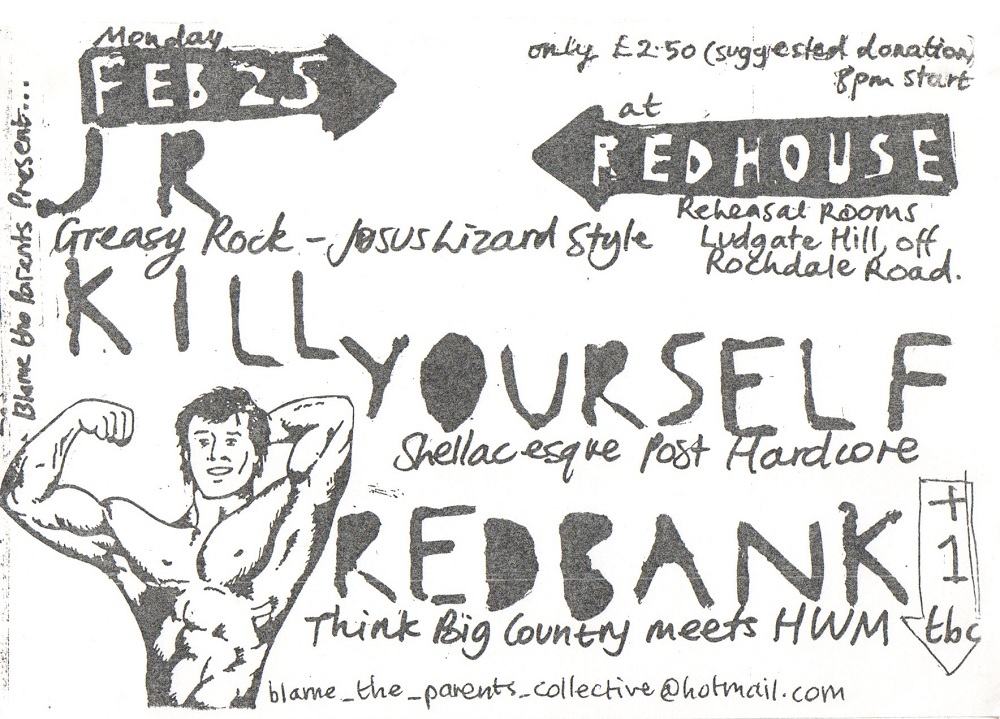 Blame the Parents Present...
Monday
FEB 25
only £2.50 (suggested donation)
8pm start
at
REDHOUSE
Rehearsal Rooms
Ludgate Hill, off
Rochdale Road.
JR
Greasy Rock - Jesus Lizard Style
KILL
YOURSELF
Shellacesque Post Hardcore
REDBANK
Think Big Country meets HWM
+
1
tbc
blame_the_parents_collective@hotmail.com